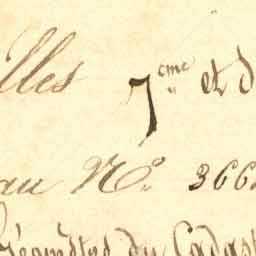 lles 7eme et d
au No. 366
Géomètres du Cadast